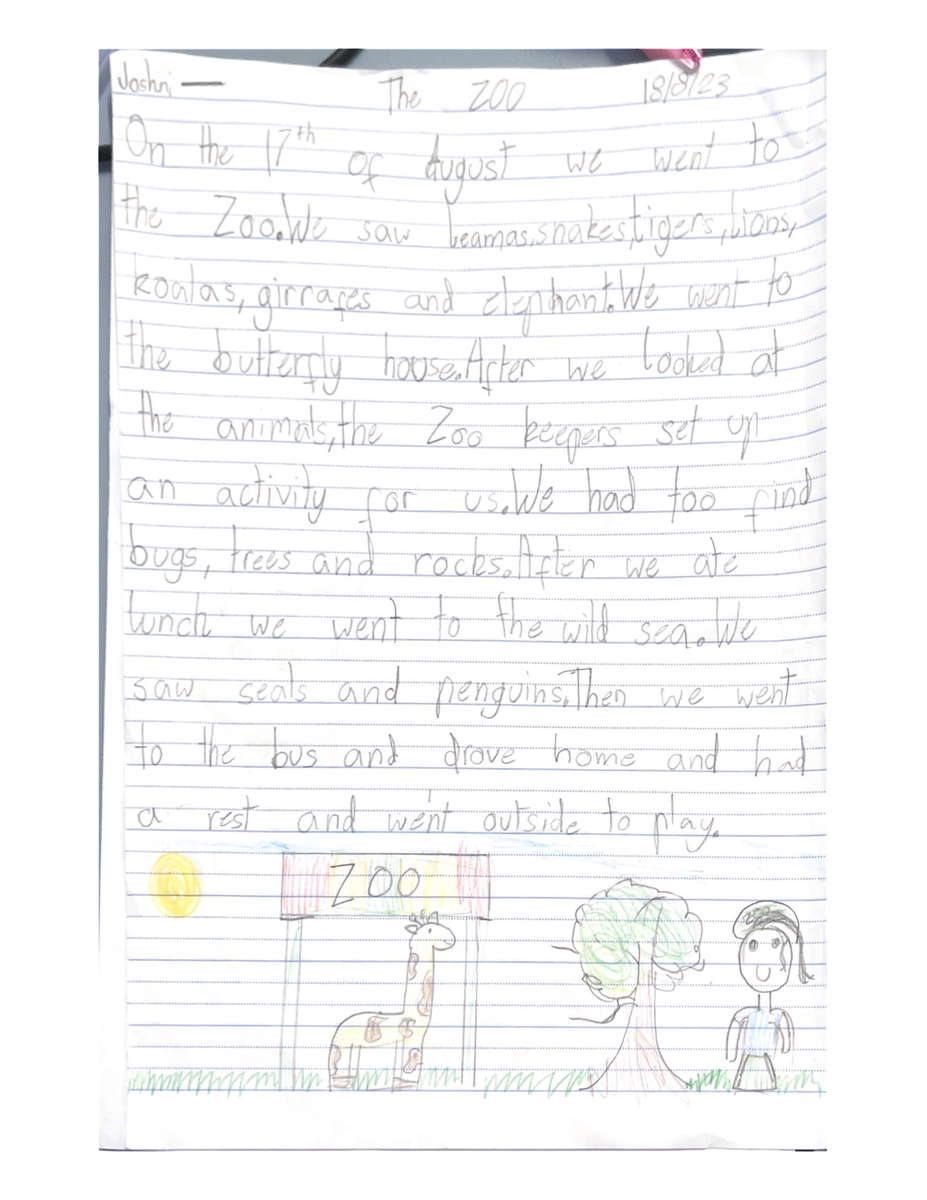 Joshni The Zoo 18/8/23
On the 17th of August we went to
the Zoo.We saw leamas,snakes,tigers,lions,
koalas, girrafes and elephant.We went to
the butterfly house.After we looked at
the animals,the Zoo keepers set up
an activity for us.We had too find
bugs, trees and rocks.After we ate
lunch we went to the wild sea.We
saw seals and penguins.Then we went
to the bus and drove home and had
a rest and went outside to play.
ZOO